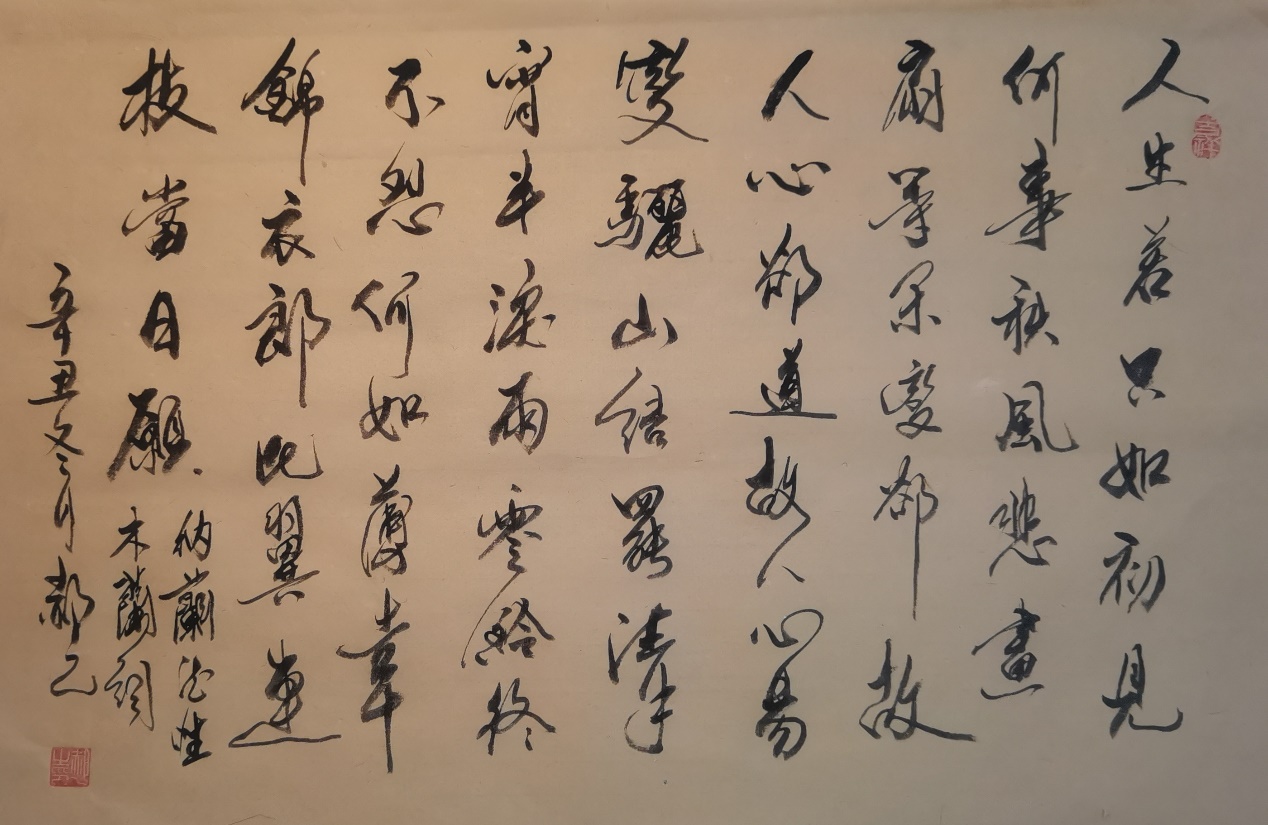 人生若只如初見
何事秋風悲畫
扇等閑變卻故
人心卻道故人心易
變驪山語罷清
宵半淚雨零鈴終
不怨何如薄幸
錦衣郎比翼連
枝當日願
納蘭德性
木蘭詞
辛丑冬月郝